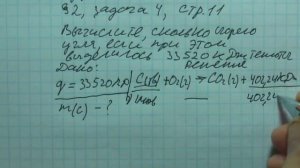 §2, задача 4, стр. 11
Вычислите, сколько сгорело
угля, если при этом
выделилось 33520 кДж теплоты
Дано: Решение
q = 33520 кДж + O₂(г) → CO₂(г) + 402,24 кДж
m(C) - ? 1 моль 402,24